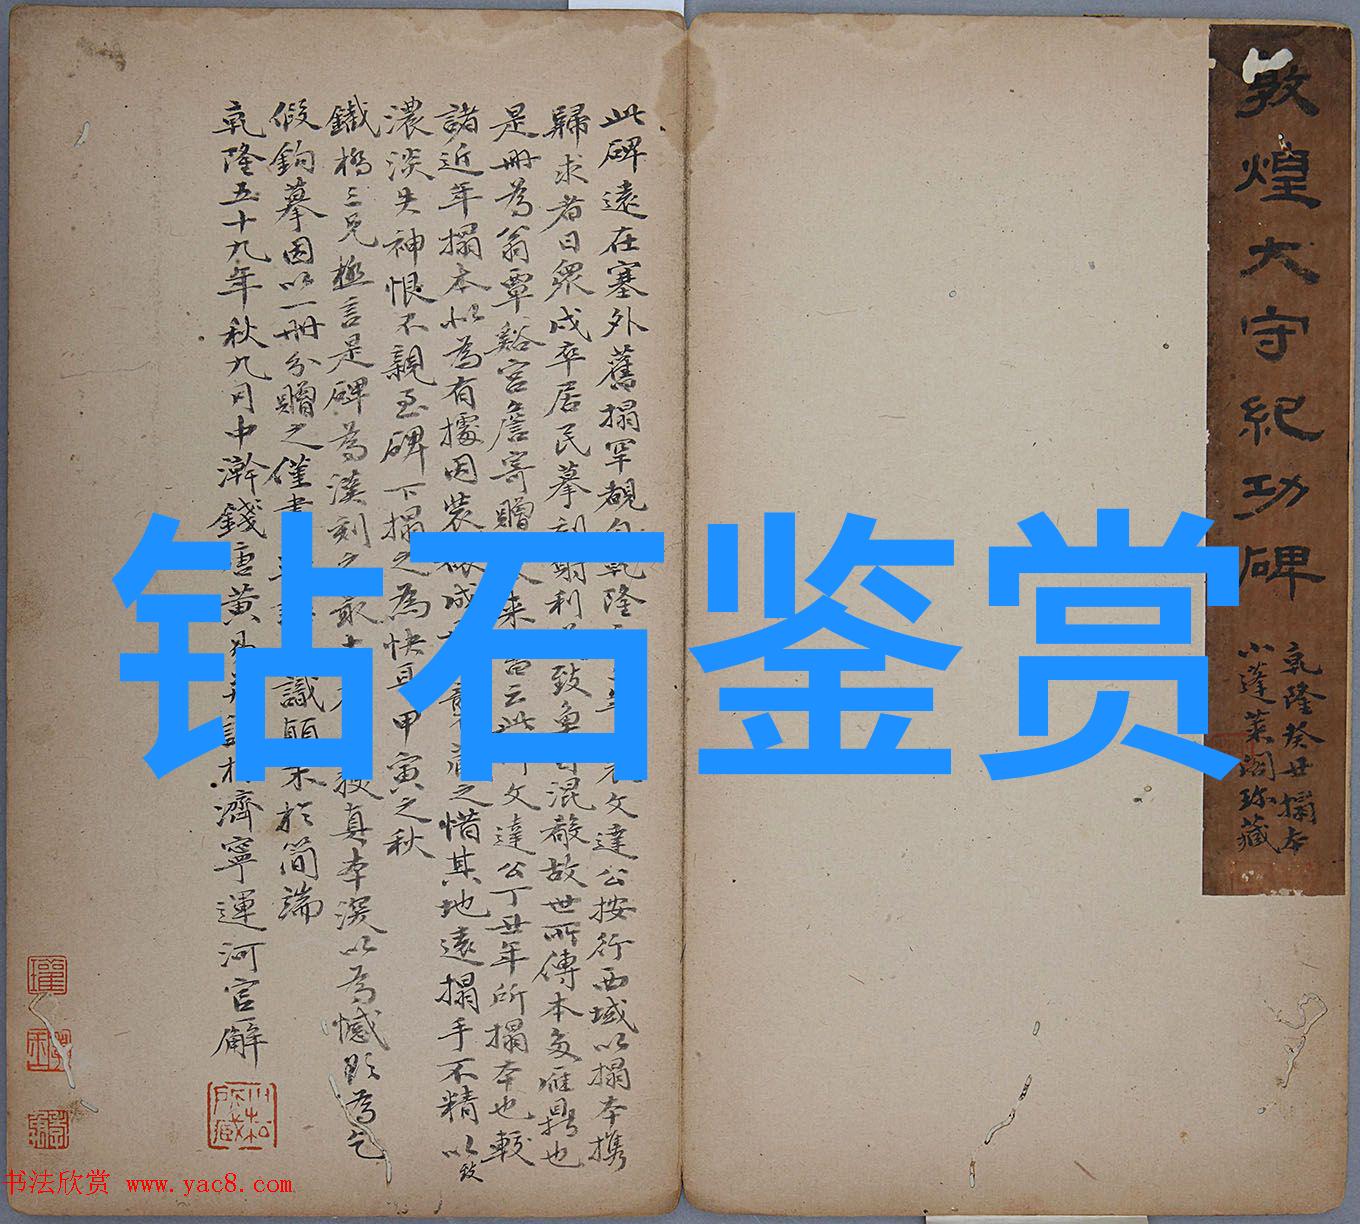 敦煌太守紀功碑
乾隆癸丑搨本
小蓬萊閣珍藏
此碑遠在塞外舊搨罕覩自乾隆文達公按行西域以搨本携
歸求者日衆戍卒居民摹刻射利致魚目混殽故世所傳本多雁鼎也
是冊為翁覃谿宮詹寄贈來文達公丁丑年所搨本也較
諸近年搨本以為有據因裝成之惜其地遠搨手不精以致
濃淡失神恨不親至碑下搨之為快耳甲寅之秋
鐵橋三兄極言是碑為漢刻之最真本深以為憾欲為乞
假鈎摹因以一冊分贈之僅書識顛末於簡端
乾隆五十九年秋九月中澣錢唐黃易濟寧運河官廨
钻石鉴赏
书法欣赏 www.yac8.com